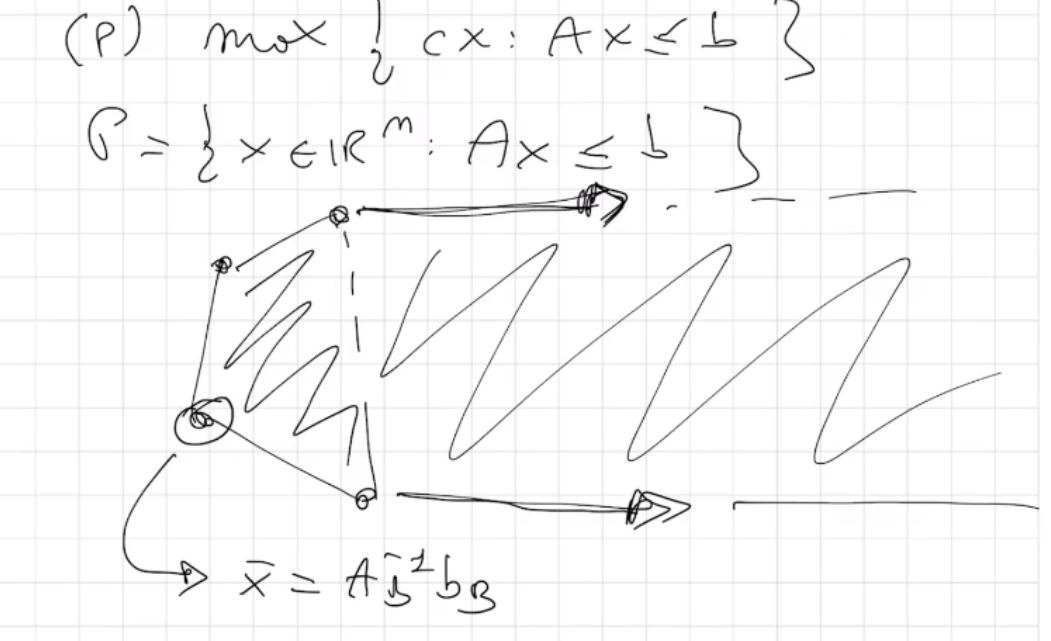 (P) max { cx : Ax ≤ b }
P = { x ∈ ℝⁿ : Ax ≤ b }
x̄ = A_B⁻¹ b_B